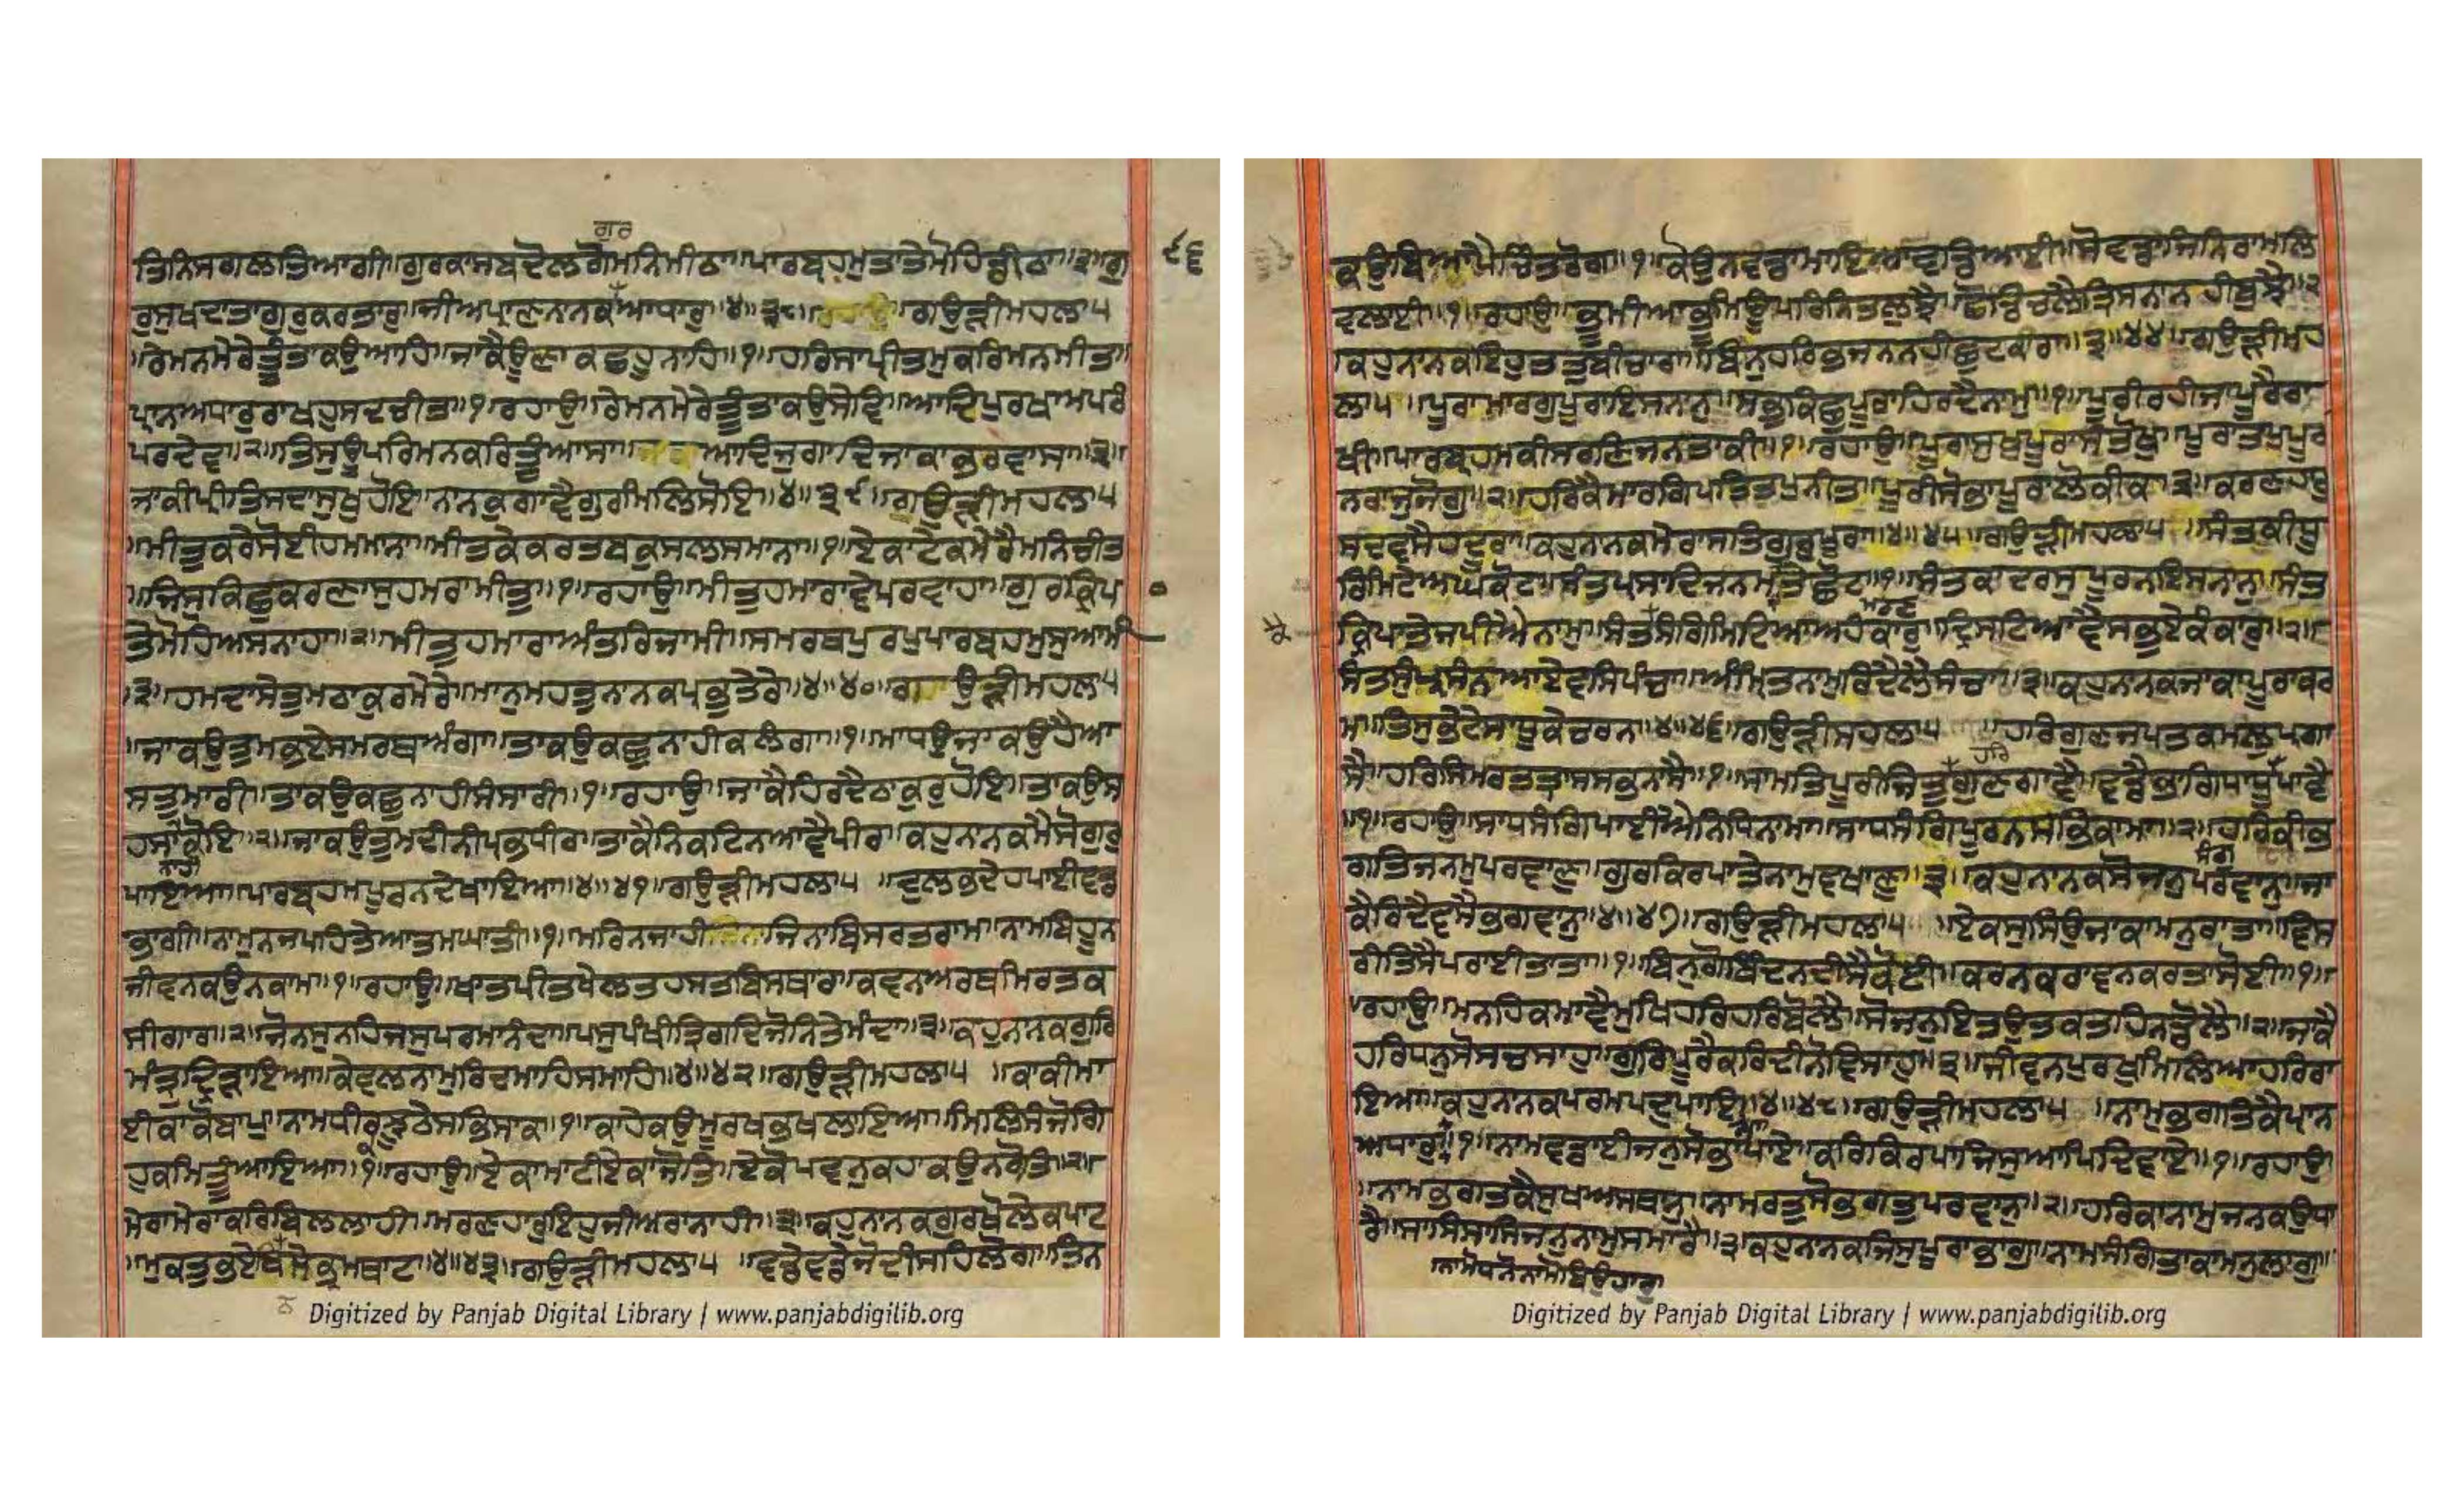 ਗੁਰ
ਤਿਨਿਸਗਲਤਿਆਗੀ॥ਗੁਰਕਾਸਬਦੋਲਗੋਮਨਿਮੀਠਾ॥ਪਾਰਬ੍ਰਹਮੁਤਾਤੇਮੋਹਿਡੀਠਾ॥੩॥ਗੁ
੯੬
ਰੁਸੁਖਦਾਤਾਗੁਰੁਕਰਤਾਰੁ॥ਜੀਅਪ੍ਰਾਣਨਾਨਕਆਧਾਰੁ॥੪॥੩੮॥ਗਉੜੀਮਹਲਾ੫
॥ਰੇਮਨਮੇਰੇਤੂੰਤਾਕਉਆਹਿ॥ਜਾਕੈਊਣਾਕਛਹੁਨਾਹਿ॥੧॥ਹਰਿਸਾਪ੍ਰੀਤਮੁਕਰਿਮਨਮੀਤ॥
ਪ੍ਰਾਨਅਧਾਰੁਰਾਖਹੁਸਦਚੀਤ॥੧॥ਰਹਾਉ॥ਰੇਮਨਮੇਰੇਤੂੰਤਾਕਉਸੇਵਿ॥ਆਦਿਪੁਰਖਅਪਰੰ
ਪਰਦੇਵ॥੨॥ਤਿਸੁਊਪਰਿਮਨਕਰਿਤੂੰਆਸਾ॥ਆਦਿਜੁਗਾਦਿਜਾਕਾਭਰਵਾਸਾ॥੩॥
ਜਾਕੀਪ੍ਰੀਤਿਸਦਾਸੁਖੁਹੋਇ॥ਨਾਨਕੁਗਾਵੈਗੁਰਮਿਲਿਸੋਇ॥੪॥੩੯॥ਗਉੜੀਮਹਲਾ੫
॥ਮੀਤੁਕਰੈਸੋਈਹਮਮਾਨਾ॥ਮੀਤਕੇਕਰਤਬਕੁਸਲਸਮਾਨਾ॥੧॥ਏਕਾਟੇਕਮੇਰੈਮਨਿਚੀਤ
॥ਜਿਸੁਕਿਛੁਕਰਣਾਸੁਹਮਰਾਮੀਤ॥੧॥ਰਹਾਉ॥ਮੀਤੁਹਮਾਰਾਵੇਪਰਵਾਹਾ॥ਗੁਰਕ੍ਰਿਪਾ
ਤੇਮੋਹਿਅਸਨਾਹਾ॥੨॥ਮੀਤੁਹਮਾਰਾਅੰਤਰਿਜਾਮੀ॥ਸਮਰਥਪੁਰਖੁਪਾਰਬ੍ਰਹਮੁਸੁਆਮੀ
॥੩॥ਹਮਦਾਸੇਤੁਮਠਾਕੁਰਮੇਰੇ॥ਮਾਨੁਮਹਤੁਨਾਨਕਪ੍ਰਭੁਤੇਰੇ॥੪॥੪੦॥ਗਉੜੀਮਹਲਾ੫
॥ਜਾਕਉਤੁਮਭਏਸਮਰਥਅੰਗਾ॥ਤਾਕਉਕਛੁਨਾਹੀਕਲੰਗਾ॥੧॥ਮਾਧਉਜਾਕਉਹੈਆ
ਸਤੁਮਾਰੀ॥ਤਾਕਉਕਛੁਨਾਹੀਸੰਸਾਰੀ॥੧॥ਰਹਾਉ॥ਜਾਕੈਹਿਰਦੈਠਾਕੁਰੁਹੋਇ॥ਤਾਕਉਸ
ਹਸਾਕੋਇ॥੨॥ਜਾਕਉਤੁਮਦੀਨੀਪ੍ਰਭਧੀਰਾ॥ਤਾਕੈਨਿਕਟਿਨਆਵੈਪੀਰਾ॥ਕਹੁਨਾਨਕਮੈਸੋਗੁਰੁ
ਨਾਹੀ
ਪਾਇਆ॥ਪਾਰਬ੍ਰਹਮਪੂਰਨਦੇਖਾਇਆ॥੪॥੪੧॥ਗਉੜੀਮਹਲਾ੫॥ਦੁਲਭਦੇਹਪਾਈਵਡ
ਭਾਗੀ॥ਨਾਮੁਨਜਪਹਿਤੇਆਤਮਘਾਤੀ॥੧॥ਮਰਿਨਜਾਹੀਜਿਨਾਬਿਸਰਤਰਾਮ॥ਨਾਮਬਿਹੂਨ
ਜੀਵਨਕਉਨਕਾਮ॥੧॥ਰਹਾਉ॥ਖਾਤਪੀਤਖੇਲਤਹਸਤਬਿਸਥਾਰ॥ਕਵਨਅਰਥਮਿਰਤਕ
ਸੀਗਾਰ॥੨॥ਜੋਨਸੁਨਹਿਜਸੁਪਰਮਾਨੰਦਾ॥ਪਸੁਪੰਖੀਤ੍ਰਿਗਦਿਜੋਨਿਤੇਮੰਦਾ॥੩॥ਕਹੁਨਾਨਕਗੁਰਿ
ਮੰਤ੍ਰਦ੍ਰਿੜਾਇਆ॥ਕੇਵਲਨਾਮੁਰਿਦਮਾਹਿਸਮਾਹਿ॥੪॥੪੨॥ਗਉੜੀਮਹਲਾ੫॥ਕਾਕੀਮਾ
ਈਕਾਕੋਬਾਪੁ॥ਨਾਮਧਾਰੀਕਝੂਠੇਸਭਿਸਾਕ॥੧॥ਕਾਹੇਕਉਮੂਰਖਭਖਲਾਇਆ॥ਮਿਲਿਸੰਜੋਗਿ
ਹੁਕਮਿਤੂੰਆਇਆ॥੧॥ਰਹਾਉ॥ਏਕਾਮਾਟੀਏਕਾਜੋਤਿ॥ਏਕੋਪਵਨੁਕਹਾਕਉਨਰੋਤਿ॥੨॥
ਮੇਰਾਮੇਰਾਕਰਿਬਿਲਲਾਹੀ॥ਮਰਣਹਾਰੁਇਹੁਜੀਅਰਾਨਾਹੀ॥੩॥ਕਹੁਨਾਨਕਗੁਰਖੋਲੇਕਪਾਟ
॥ਮੁਕਤੁਭਏਬਿਨਸੇਭ੍ਰਮਥਾਟ॥੪॥੪੩॥ਗਉੜੀਮਹਲਾ੫॥ਵਡੇਵਡੇਜੋਦੀਸਹਿਲੋਗ॥ਤਿਨ
Digitized by Panjab Digital Library | www.panjabdigilib.org
ਕਉਬਿਆਪੈਚਿੰਤਰੋਗ॥੧॥ਕੌਉਨਵਡਾਮਾਇਆਵਡਿਆਈ॥ਸੋਵਡਾਜਿਨਿਰਾਮਲਿ
ਵਲਾਈ॥੧॥ਰਹਾਉ॥ਭੂਮੀਆਭੂਮਿਊਪਰਿਨਿਤਲੁਝੈ॥ਛੋਡਿਚਲੈਤ੍ਰਿਸਨਾਨਹੀਬੁਝੈ॥੨
ਕਹੁਨਾਨਕਇਹੁਤਤੁਬੀਚਾਰਾ॥ਬਿਨੁਹਰਿਭਜਨਨਹੀਛੁਟਕਾਰਾ॥੩॥੪੪॥ਗਉੜੀਮਹ
ਲਾ੫॥ਪੂਰਾਮਾਰਗੁਪੂਰਾਇਸਨਾਨੁ॥ਸਭੁਕਿਛੁਪੂਰਾਹਿਰਦੈਨਾਮੁ॥੧॥ਪੂਰੀਰਹੀਜਾਪੂਰੈਰਾ
ਖੀ॥ਪਾਰਬ੍ਰਹਮਕੀਸਰਣਿਜਨਤਾਕੀ॥੧॥ਰਹਾਉ॥ਪੂਰਾਸੁਖੁਪੂਰਾਸੰਤੋਖੁ॥ਪੂਰਾਤਪੁਪੂਰ
ਨਰਾਜੁਜੋਗੁ॥੨॥ਹਰਿਕੈਮਾਰਗਿਪਤਿਤਪੁਨੀਤ॥ਪੂਰੀਸੋਭਾਪੂਰਾਲੋਕੀਕ॥੩॥ਕਰਣਹਾਰੁ
ਸਦਵਸੈਹਦੂਰਾ॥ਕਹੁਨਾਨਕਮੇਰਾਸਤਿਗੁਰੁਪੂਰਾ॥੪॥੪੫॥ਗਉੜੀਮਹਲਾ੫॥ਸੰਤਕੀਧੂ
ਰਿਮਿਟੇਅਘਕੋਟ॥ਸੰਤਪ੍ਰਸਾਦਿਜਨਮਮਰਣਤੇਛੋਟ॥੧॥ਸੰਤਕਾਦਰਸੁਪੂਰਨਇਸਨਾਨੁ॥ਸੰਤ
ਮਰਣ
ਕ੍ਰਿਪਾਤੇਜਪੀਐਨਾਮੁ॥ਸੰਤਸੰਗਿਮਿਟਿਆਅਹੰਕਾਰੁ॥ਦ੍ਰਿਸਟਿਆਵੈਸਭੁਏਕੰਕਾਰੁ॥੨॥
ਸੰਤਸੁਪ੍ਰਸੰਨਆਏਵਸਿਪੰਚਾ॥ਅੰਮ੍ਰਿਤਨਾਮੁਰਿਦੈਲੈਸੰਚਾ॥੩॥ਕਹੁਨਾਨਕਜਾਕਾਪੂਰਾਕਰ
ਮ॥ਤਿਸੁਭੇਟੇਸਾਧੂਕੇਚਰਨ॥੪॥੪੬॥ਗਉੜੀਮਹਲਾ੫॥ਹਰਿਗੁਣਜਪਤਕਮਲੁਪ੍ਰਗਾ
ਹਰਿ
ਸੈ॥ਹਰਿਸਿਮਰਤਤ੍ਰਾਸਸਭਨਾਸੈ॥੧॥ਸਾਮਤਿਪੂਰੀਜਿਤੁਗੁਣਗਾਵੈ॥ਵਡੈਭਾਗਿਸਾਧੂਪਾਵੈ
॥੧॥ਰਹਾਉ॥ਸਾਧਸੰਗਿਪਾਈਐਨਿਧਿਨਾਮਾ॥ਸਾਧਸੰਗਿਪੂਰਨਸਭਿਕਾਮਾ॥੨॥ਹਰਿਕੀਭ
ਗਤਿਜਨਮੁਪਰਵਾਣੁ॥ਗੁਰਕਿਰਪਾਤੇਨਾਮੁਵਖਾਣੁ॥੩॥ਕਹੁਨਾਨਕਸੋਜਨੁਪਰਵਾਨੁ॥ਜਾ
ਕੈਰਿਦੈਵਸੈਭਗਵਾਨੁ॥੪॥੪੭॥ਗਉੜੀਮਹਲਾ੫॥ਏਕਸੁਸਿਉਜਾਕਾਮਨੁਰਾਤਾ॥ਵਿਸ
ਰੀਤਿਸੈਪਰਾਈਤਾਤਾ॥੧॥ਬਿਨੁਗੋਬਿੰਦਨਦੀਸੈਕੋਈ॥ਕਰਨਕਰਾਵਨਕਰਤਾਸੋਈ॥੧॥
॥ਰਹਾਉ॥ਮਨਹਿਕਮਾਵੈਮੁਖਿਹਰਿਹਰਿਬੋਲੈ॥ਸੋਜਨੁਇਤਉਤਕਤਹਿਨਡੋਲੈ॥੨॥ਜਾਕੈ
ਹਰਿਧਨੁਸੋਸਚਸਾਹੁ॥ਗੁਰਿਪੂਰੈਕਰਿਦੀਨੋਵਿਸਾਹੁ॥੩॥ਜੀਵਨਪੁਰਖੁਮਿਲਿਆਹਰਿਰਾ
ਇਆ॥ਕਹੁਨਾਨਕਪਰਮਪਦੁਪਾਇਆ॥੪॥੪੮॥ਗਉੜੀਮਹਲਾ੫॥ਨਾਮੁਭਗਤਿਕੈਪ੍ਰਾਨ
ਅਧਾਰੁ॥੧॥ਨਾਮਵਡਾਈਜਨੁਸੋਭਾਪਾਏ॥ਕਰਿਕਿਰਪਾਜਿਸੁਆਪਿਦਿਵਾਏ॥੧॥ਰਹਾਉ
॥ਨਾਮਭਗਤਕੈਸੁਖਅਸਥਾਨੁ॥ਨਾਮਰਤੁਸੋਭਗਤੁਪਰਵਾਨੁ॥੨॥ਹਰਿਕਾਨਾਮੁਜਨਕਉਧਾ
ਰੈ॥ਸਾਸਿਸਾਸਿਜਨੁਨਾਮੁਸਮਾਰੈ॥੩॥ਕਹੁਨਾਨਕਜਿਸੁਪੂਰਾਭਾਗੁ॥ਨਾਮਸੰਗਿਤਾਕਾਮਨੁਲਾਗੁ॥
ਨਾਮੋਧਨੋਨਾਮੋਬਿਉਹਾਰੁ
Digitized by Panjab Digital Library | www.panjabdigilib.org